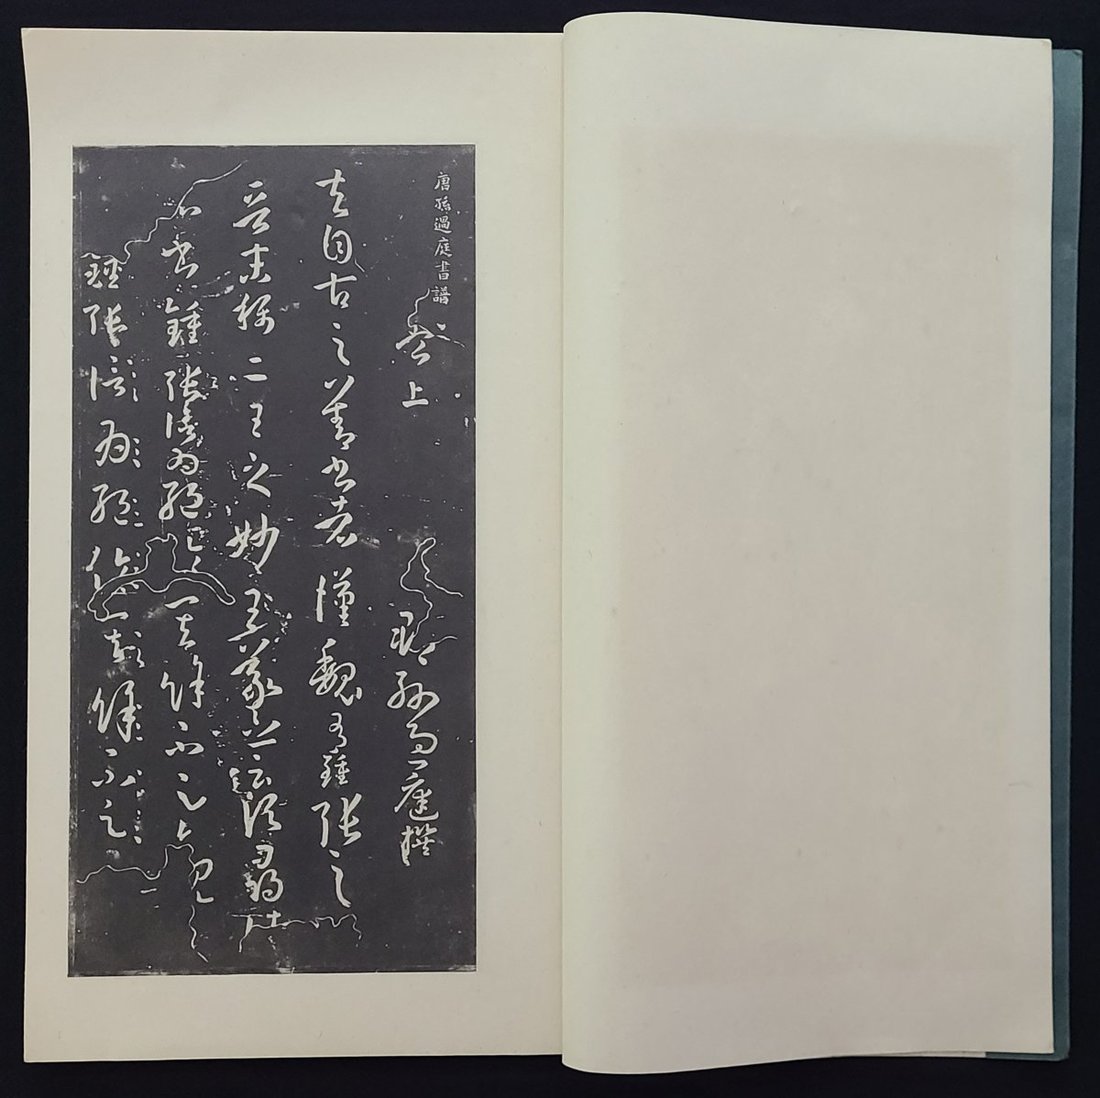 唐孫過庭書譜
卷上 郡孫過庭撰
夫自古之善書者漢魏有鍾張之
晉末稱二王之妙王羲之云頃尋
名書鍾張信為絕倫其餘不足觀
鍾張信為絕倫其餘不足